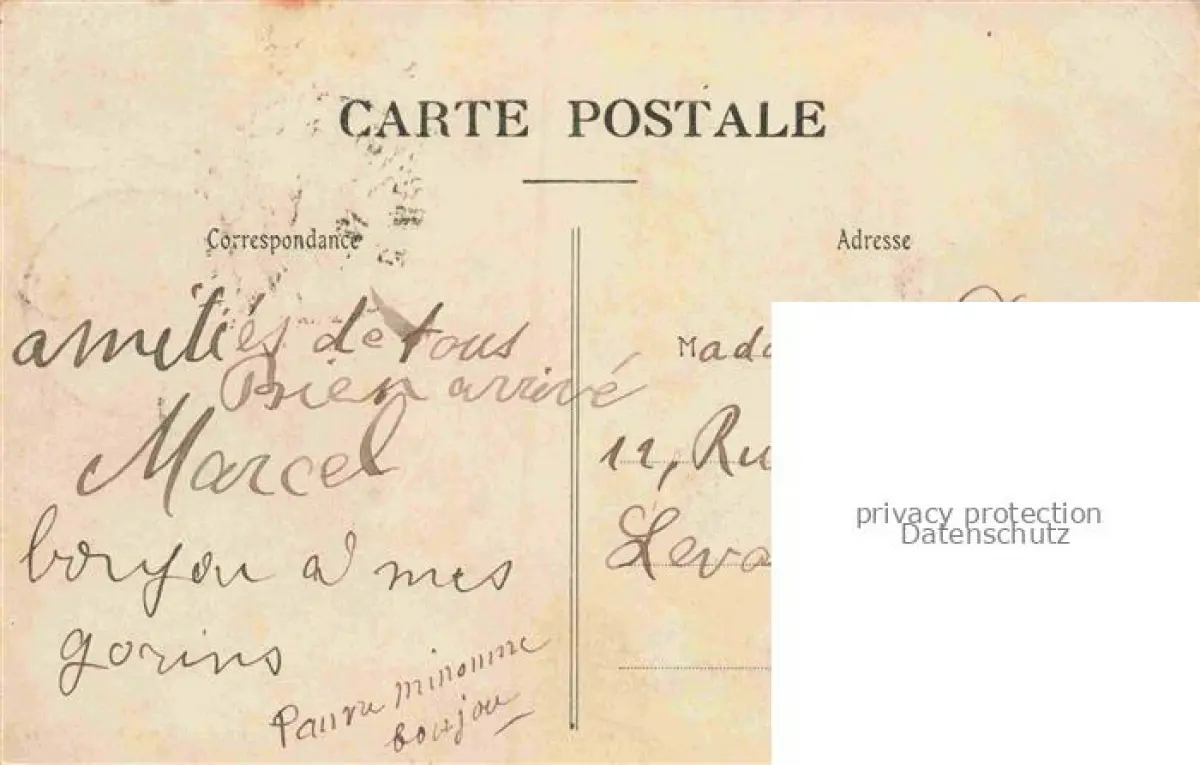 CARTE POSTALE
Correspondance
amitiés de tous
Bien arrivé
Marcel
bonjou a mes
gorins
Pauvre minomme
bonjou
Adresse
Mada
11, Ru
Leva
privacy protection
Datenschutz